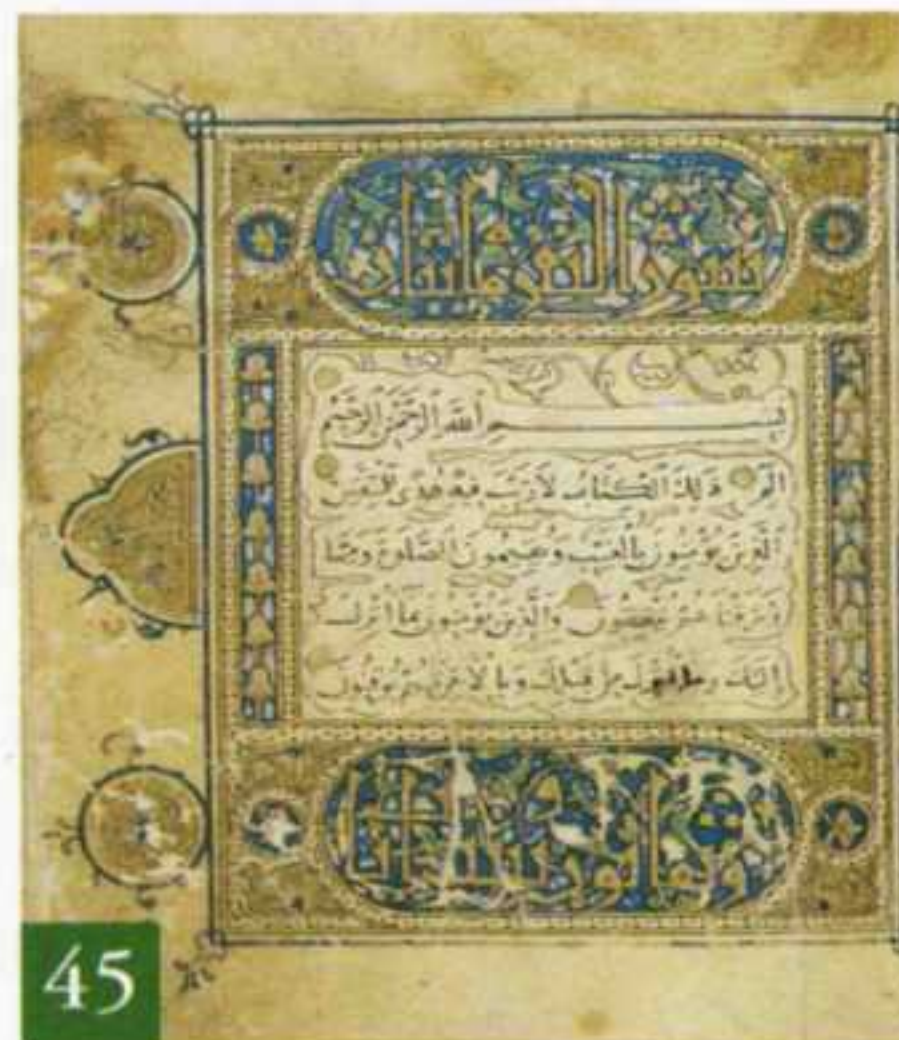 سورة البقرة مائتان
بسم الله الرحمن الرحيم
الم ذلك الكتاب لا ريب فيه هدى للمتقين
الذين يؤمنون بالغيب ويقيمون الصلوة ومما
رزقناهم ينفقون والذين يؤمنون بما انزل
اليك وما انزل من قبلك وبالاخرة هم يوقنون
وثمانون
45